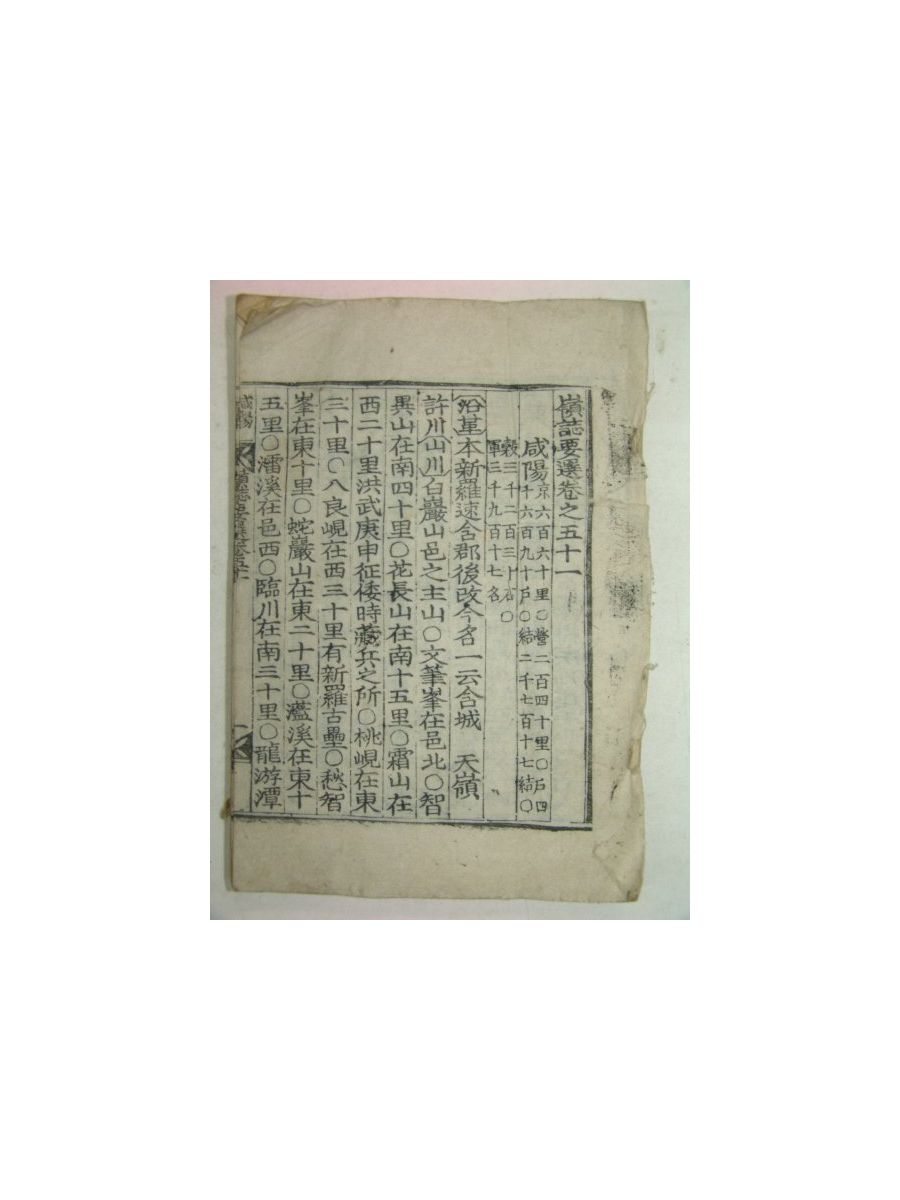 嶺誌要選卷之五十一
咸陽 京六百六十里○營二百四十里○戶四
千六百九十戶○結二千七百十七結○
穀三千二百三十石○
軍三千九百十七名
沿革本新羅速含郡後改今名一云含城 天嶺
許川 山川 白巖山邑之主山○文筆峯在邑北○智
異山在南四十里○花長山在南十五里○霜山在
西二十里洪武庚申征倭時藏兵之所○桃峴在東
三十里○八良峴在西三十里有新羅古壘○愁智
峯在東十里○蛇巖山在東二十里○灆溪在東十
五里○㵢溪在邑西○臨川在南三十里○龍游潭
咸陽 嶺誌要選卷五十一 一